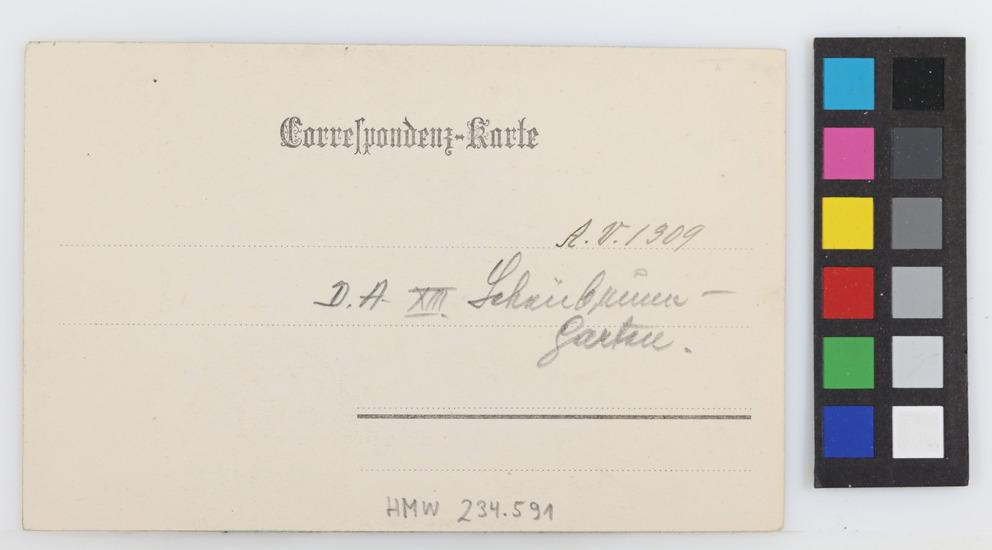 Correſpondenz-Karte
A. V. 1309
D. A. XIII Schönbrunn-
Garten.
HMW 234.591